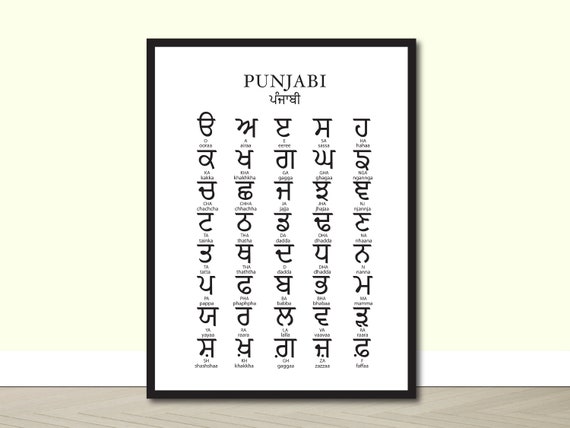 PUNJABI
ਪੰਜਾਬੀ
ੳ ਅ ੲ ਸ ਹ
O A E SA HA
ooraa aeraa eeree sassa hahaa
ਕ ਖ ਗ ਘ ਙ
KA KHA GA GHA NGA
kakka khakhkha gagga ghagaa ngannga
ਚ ਛ ਜ ਝ ਞ
CHA CHHA JA JHA NJ
chachcha chhachha jajja jhajaa njannja
ਟ ਠ ਡ ਢ ਣ
TA THA DA DHA NA
tainka thatha dadda dhadda nhaana
ਤ ਥ ਦ ਧ ਨ
TA THA D DHA N
tatta thaththa dadda dhadda nanna
ਪ ਫ ਬ ਭ ਮ
PA PHA BA BHA MA
pappa phaphpha babba bhabaa mamma
ਯ ਰ ਲ ਵ ੜ
YA RA LA VA RA
yayaa raara lalla vaavaa raara
ਸ਼ ਖ਼ ਗ਼ ਜ਼ ਫ਼
SH KH GH ZA F
khakkha gaggaa zazzaa faffaa